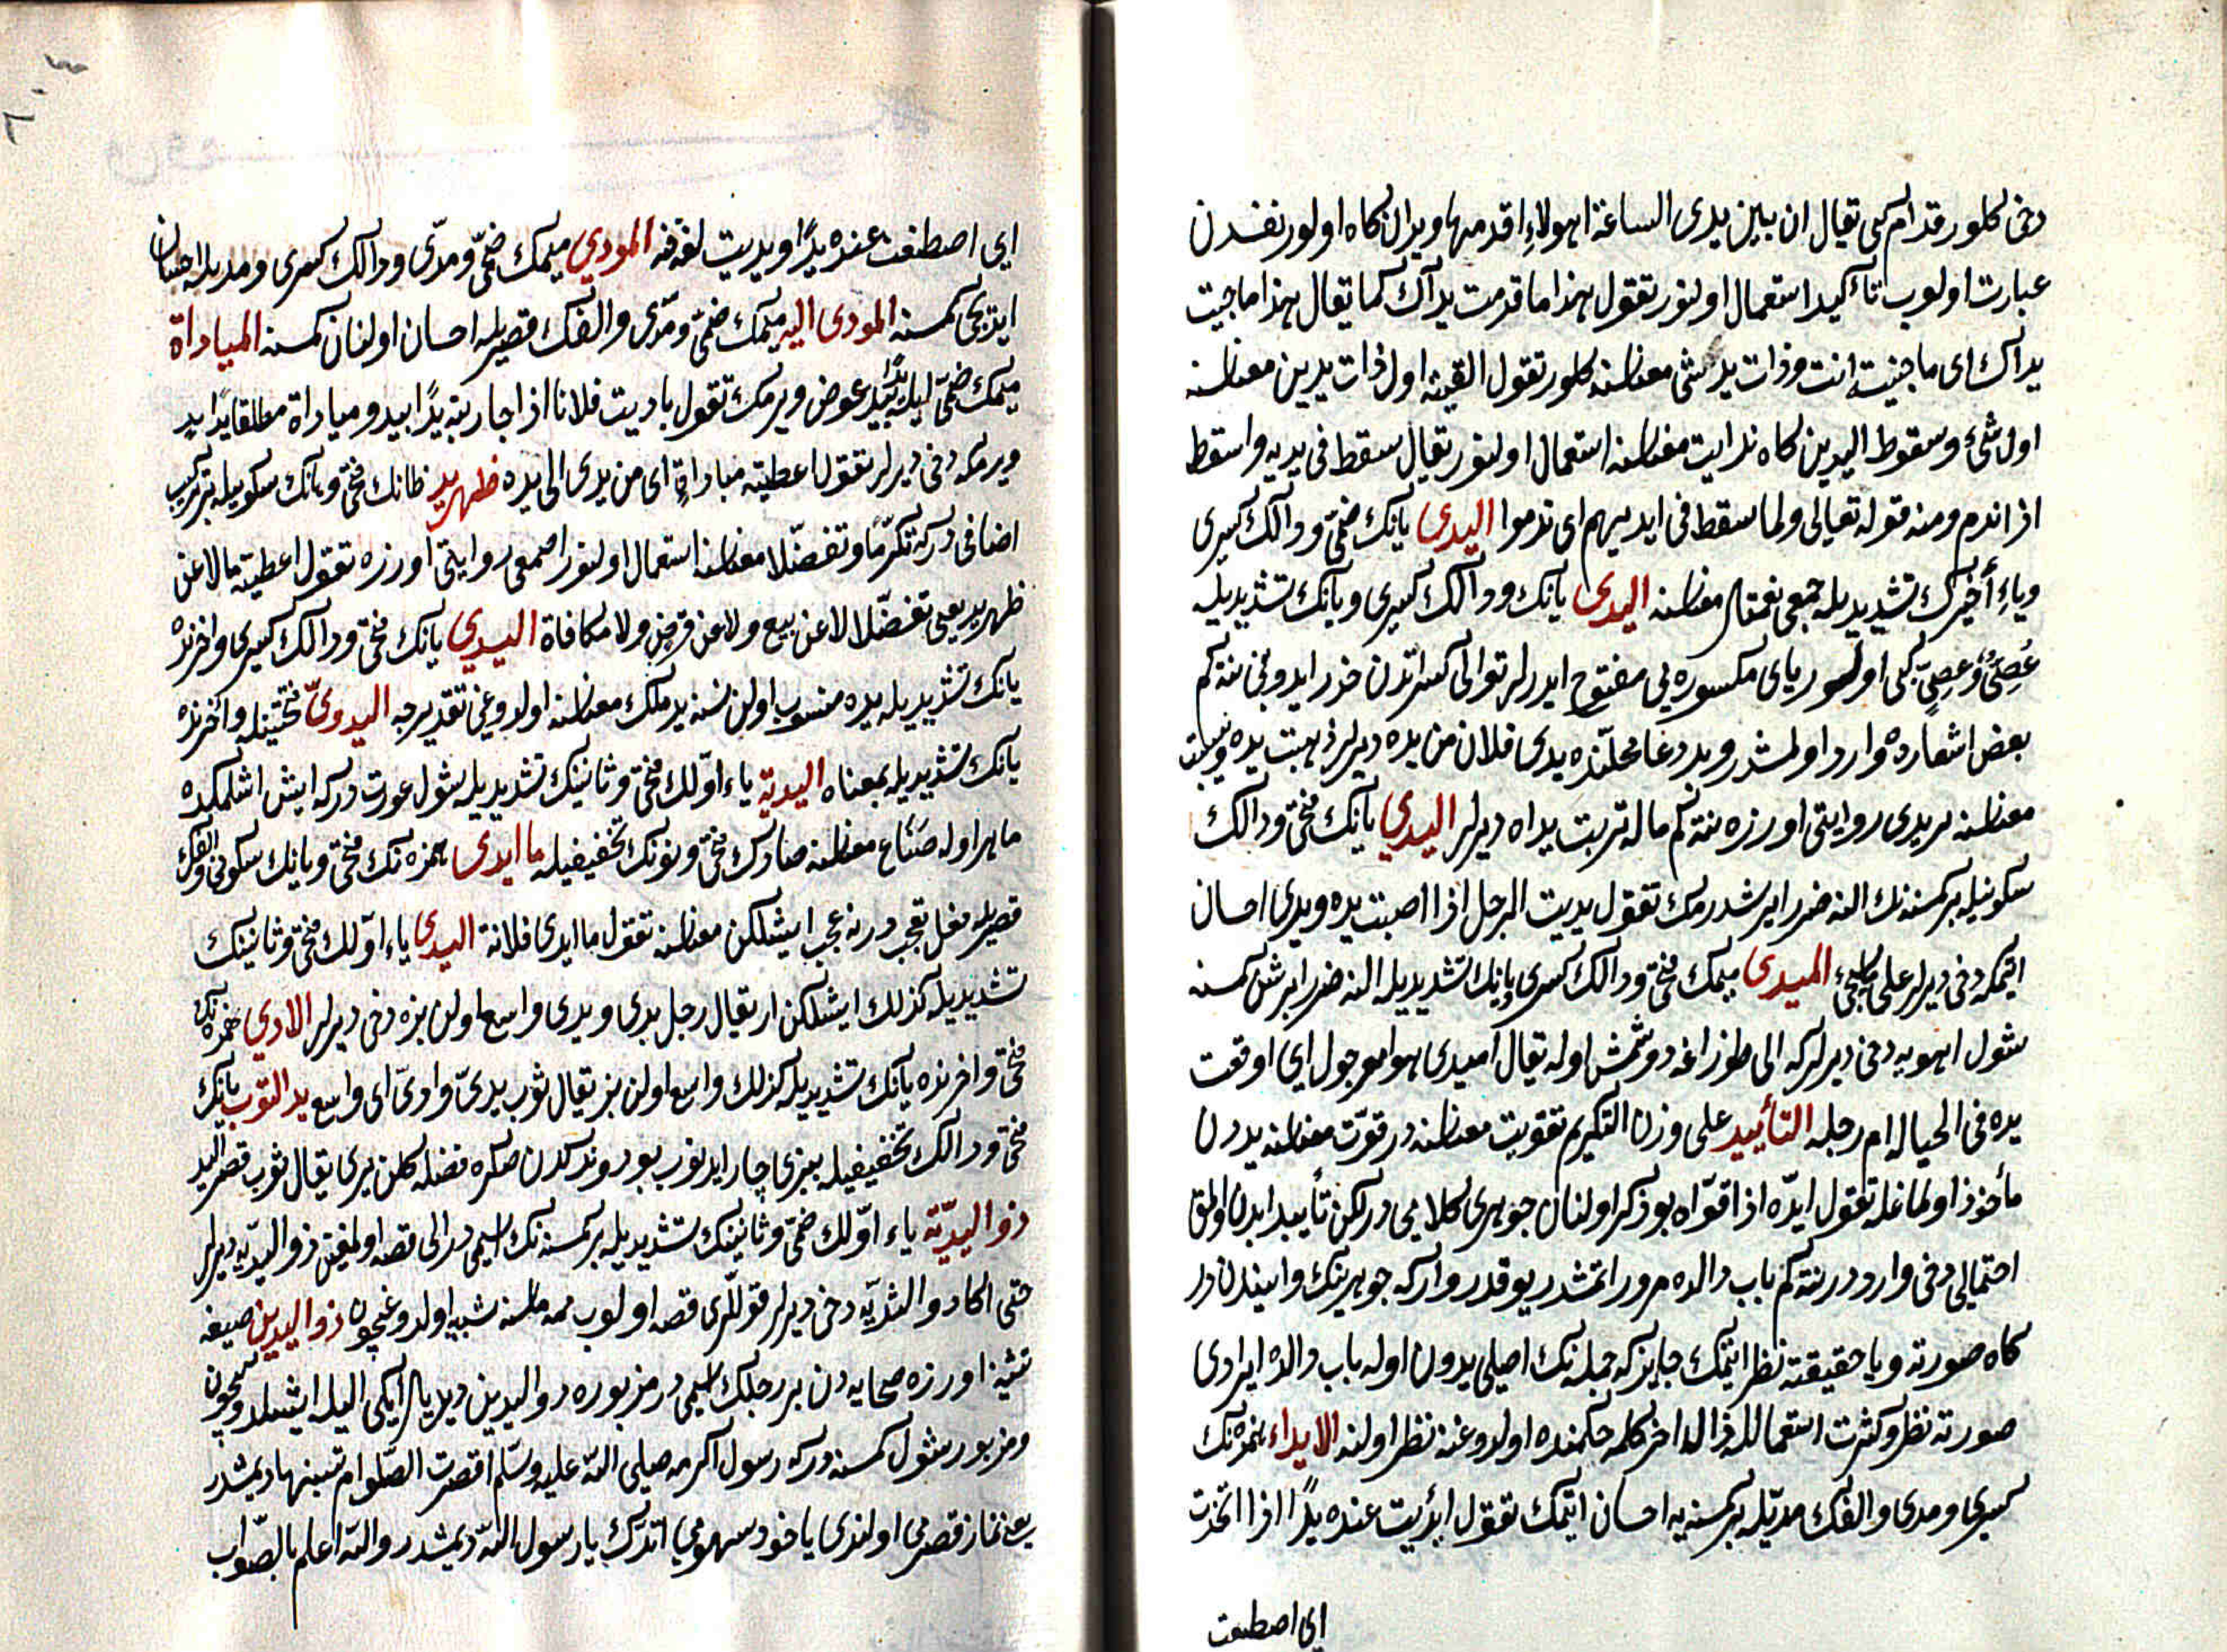 دخی کلور قدام کبی تقال ان بین یدی الساعة اهولاء اقدمها ویدان کاه اولور نفسدن
عبارت اولوب تأکید استعمال اولنور تقول هذا ما قدمت یداک کما تقال هذا ما جنت
یداک ای ما جنیته انت وذات ید شئ معناسنه کلور تقول القیته اول ذات یدین معناسنه
اول شئ وسقوط الیدین کاه ندامت معناسنه استعمال اولنور یقال سقط فی یدیه واسقط
اذا ندم ومنه قوله تعالی ولما سقط فی ایدیهم ای ندموا الیدی یانک ضمی ودالک کسری
ویاء أخیرک تشدیدیله جمعی نعمتلر معناسنه الیدی یانک ودالک کسری ویانک تشدیدیله
عُصِیّ وعِصِیّ کبی اولور یای مکسوره یی مفتوح ایدرلر توالی کسراتدن حذر ایدوبنی نته کم
بعض اشعارده وارد اولمشدر وبد دعا محلنده یدی فلان من یده دیرلر ذهبت یده ویبست
معناسنه یریدی روایتی اوزره نته کم ماله تربت یداه دیرلر الیدی یانک فتحی ودالک
سکونیله بر کمسنه نک النه ضرر ایرشدرمک تقول یدیت الرجل اذا اصبت یده ویدی احسان
ایتمکه دخی دیرلر علی ما یجئ المیدی میمک فتحی ودالک کسری ویانک تشدیدیله النه ضرر ایرشن کمسنه
شول اهویه دخی دیرلرکه الی طوزاغه دوشمش اوله تقال امیدی هو ام مرجول ای اوقعت
یده فی الحباله ام رجله التأیید علی وزن التکریم تقویت معناسنه در قوت معناسنه یددن
مأخوذ اولماغله تقول ایده اذا قواه بو ذکر اولنان جوهری کلامی در لکن تأیید ایدن اولمق
احتمالی دخی وارد در نته کم باب دالده مرور اتمشدر بو قدر وارکه جوهرینک وایندن در
کاه صورته ویا حقیقته نظر ایتمک جایزکه جمله نک اصلی یدون اوله باب دالده ایرادی
صورته نظر وکثرت استعمالله دال اخر کلمه حکمنده اولدوغنه نظر اولنه الایداء همزه نک
کسری ومدی والفک مدیله بر کمسنه یه احسان ایتمک تقول أیدیت عنده یدًا اذا اتخذت
ای اصطنعت
ای اصطنعت عنده یدًا ویدیت لغة فیه المودی میمک ضمی ومدّی ودالک کسری ومدیله احسان
ایدیجی کمسنه المودی الیه میمک ضمی ومدّی والفک قصریله احسان اولنان کمسنه المیاداة
میمک ضمی ایله یدًا بید عوض ویرمک تقول یادیت فلانا اذا جازیته یدًا بید ومیاداة مطلقا یدًا بید
ویرمکه دخی دیرلر تقول اعطیته میاداة ای من یدی الی یده ظهرید ظانک فتحی وهانک سکونیله ترکیب
اضافی درکه تکرّمًا وتفضّلا معناسنه استعمال اولنور اصمعی روایتی اوزره تقول اعطیته مالا عن
ظهرید یعنی تفضّلا لا عن بیع ولا عن قرض ولا مکافاة الیدی یانک فتحی ودالک کسری واخرنده
یانک تشدیدیله یده منسوب اولن نسنه ید ملک معناسنه اولدوغی تقدیرجه الیدوی فتحتینله واخرنده
یانک تشدیدیله بمعناه الیدیة یاء اولک فتحی وثانینک تشدیدیله شول عورت درکه ایش اشلمکده
ماهر اوله صناع معناسنه صادک فتحی ونونک تخفیفیله ما ایدی همزه نک فتحی ویانک سکونی والفک
قصریله فعل تعجب در نه عجب ایشلکن معناسنه تقول ما ایدی فلانة الیدی یاء اولک فتحی وثانینک
تشدیدیله کذلک ایشلکن ار تقال رجل یدی ویدی واسع اولن بزه دخی دیرلر الادی همزه نک
فتحی واخرنده یانک تشدیدیله کذلک واسع اولن بز یقال ثوب یدیّ وادیّ ای واسع ید الثوب یانک
فتحی ودالک تخفیفیله بزی چار ایدنوب بورندکدن صکره فضله کلن یری یقال ثوب قصیر الید
ذو الیدیّة یاء اولک ضمی وثانینک تشدیدیله بر کمسنه نک اسمی در الی قصه اولمغین ذو الیدیه دیرلر
حتی اکا ذو الثدیه دخی دیرلر قوللری قصه اولوب ممه سنه شبیه اولدوغیچون ذو الیدین صیغهٔ
تثنیه اوزره صحابه دن بر رجلک اسمی در مزبوره ذو الیدین دیدیلر ایکی الیله ایشلدوکیچون
ومزبور شول کمسنه درکه رسول اکرمه صلی الله علیه وسلم اقصرت الصلوة ام نسیتها دیمشدر
یعنی نماز قصرمی اولندی یاخود سهومی اتدک یا رسول الله دیمشدر والله اعلم بالصواب